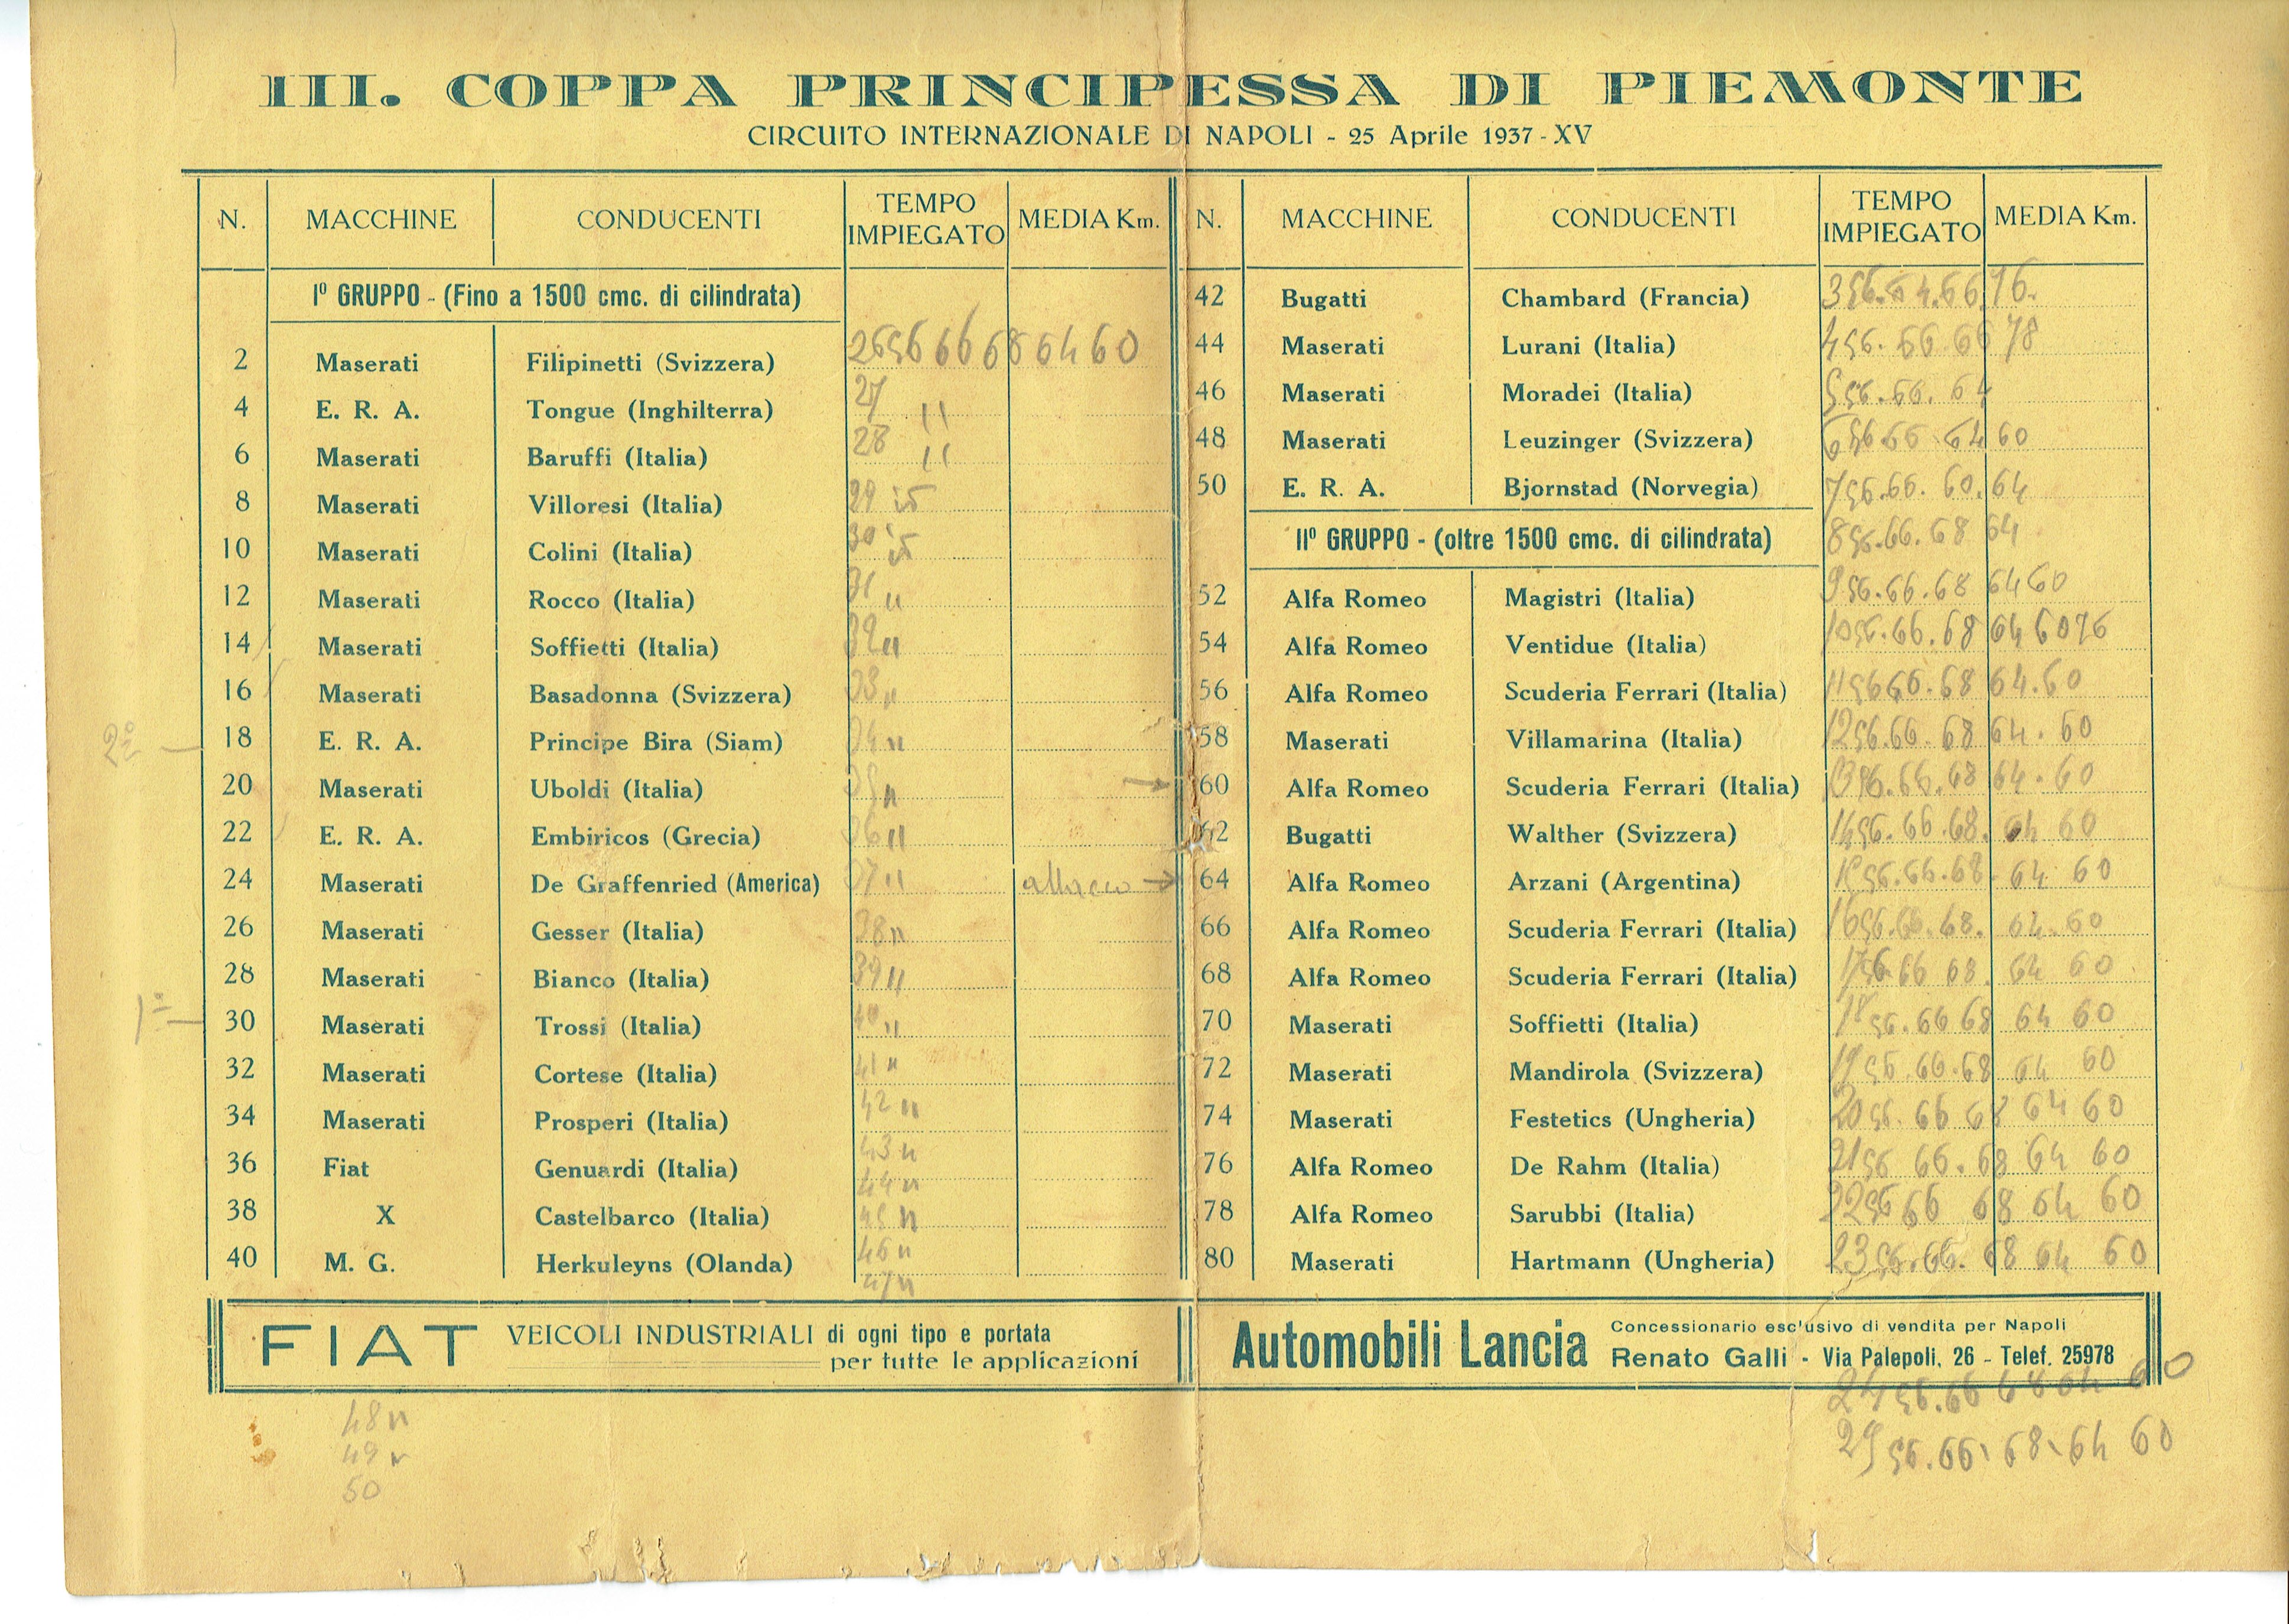 III. COPPA PRINCIPESSA DI PIEMONTE
CIRCUITO INTERNAZIONALE DI NAPOLI - 25 Aprile 1937 - XV
N. MACCHINE CONDUCENTI TEMPO IMPIEGATO MEDIA Km.
Iº GRUPPO - (Fino a 1500 cmc. di cilindrata)
2 Maserati Filipinetti (Svizzera) 26 56 66 68 64 60
4 E. R. A. Tongue (Inghilterra) 27 "
6 Maserati Baruffi (Italia) 28 "
8 Maserati Villoresi (Italia) 29
10 Maserati Colini (Italia) 30
12 Maserati Rocco (Italia) 31 "
14 Maserati Soffietti (Italia) 32 "
16 Maserati Basadonna (Svizzera) 33 "
2º 18 E. R. A. Principe Bira (Siam) 34 "
20 Maserati Uboldi (Italia) 35 "
22 E. R. A. Embiricos (Grecia) 36 "
24 Maserati De Graffenried (America) 37 "
26 Maserati Gesser (Italia) 38 "
28 Maserati Bianco (Italia) 39 "
1º 30 Maserati Trossi (Italia) 40 "
32 Maserati Cortese (Italia) 41 "
34 Maserati Prosperi (Italia) 42 "
36 Fiat Genuardi (Italia) 43 "
44 "
38 X Castelbarco (Italia) 45 "
40 M. G. Herkuleyns (Olanda) 46 "
47 "
N. MACCHINE CONDUCENTI TEMPO IMPIEGATO MEDIA Km.
42 Bugatti Chambard (Francia) 3 56. 64. 66 76.
44 Maserati Lurani (Italia) 4 56. 66 66 78
46 Maserati Moradei (Italia) 5 56. 66. 64
48 Maserati Leuzinger (Svizzera) 6 56 66 64 60
50 E. R. A. Bjornstad (Norvegia) 7 56. 66. 60. 64
IIº GRUPPO - (oltre 1500 cmc. di cilindrata) 8 56. 66. 68 64
52 Alfa Romeo Magistri (Italia) 9 56. 66. 68 64 60
54 Alfa Romeo Ventidue (Italia) 10 56. 66. 68 64 60 76
56 Alfa Romeo Scuderia Ferrari (Italia) 11 56 66. 68 64. 60
58 Maserati Villamarina (Italia) 12 56. 66. 68 64. 60
60 Alfa Romeo Scuderia Ferrari (Italia) 13 56. 66. 68 64. 60
62 Bugatti Walther (Svizzera) 14 56. 66. 68. 64 60
64 Alfa Romeo Arzani (Argentina) 15 56. 66. 68. 64 60
66 Alfa Romeo Scuderia Ferrari (Italia) 16 56. 66. 68. 64. 60
68 Alfa Romeo Scuderia Ferrari (Italia) 17 56 66 68. 64 60
70 Maserati Soffietti (Italia) 18 56. 66 68 64 60
72 Maserati Mandirola (Svizzera) 19 56. 66. 68 64 60
74 Maserati Festetics (Ungheria) 20 56. 66 68 64 60
76 Alfa Romeo De Rahm (Italia) 21 56 66. 68 64 60
78 Alfa Romeo Sarubbi (Italia) 22 56 66 68 64 60
80 Maserati Hartmann (Ungheria) 23 56. 66. 68 64 60
FIAT VEICOLI INDUSTRIALI di ogni tipo e portata
per tutte le applicazioni
Automobili Lancia Concessionario esclusivo di vendita per Napoli
Renato Galli - Via Palepoli, 26 - Telef. 25978
24 56. 66 68 64 60
25 56. 66 68 64 60
48 "
49 "
50